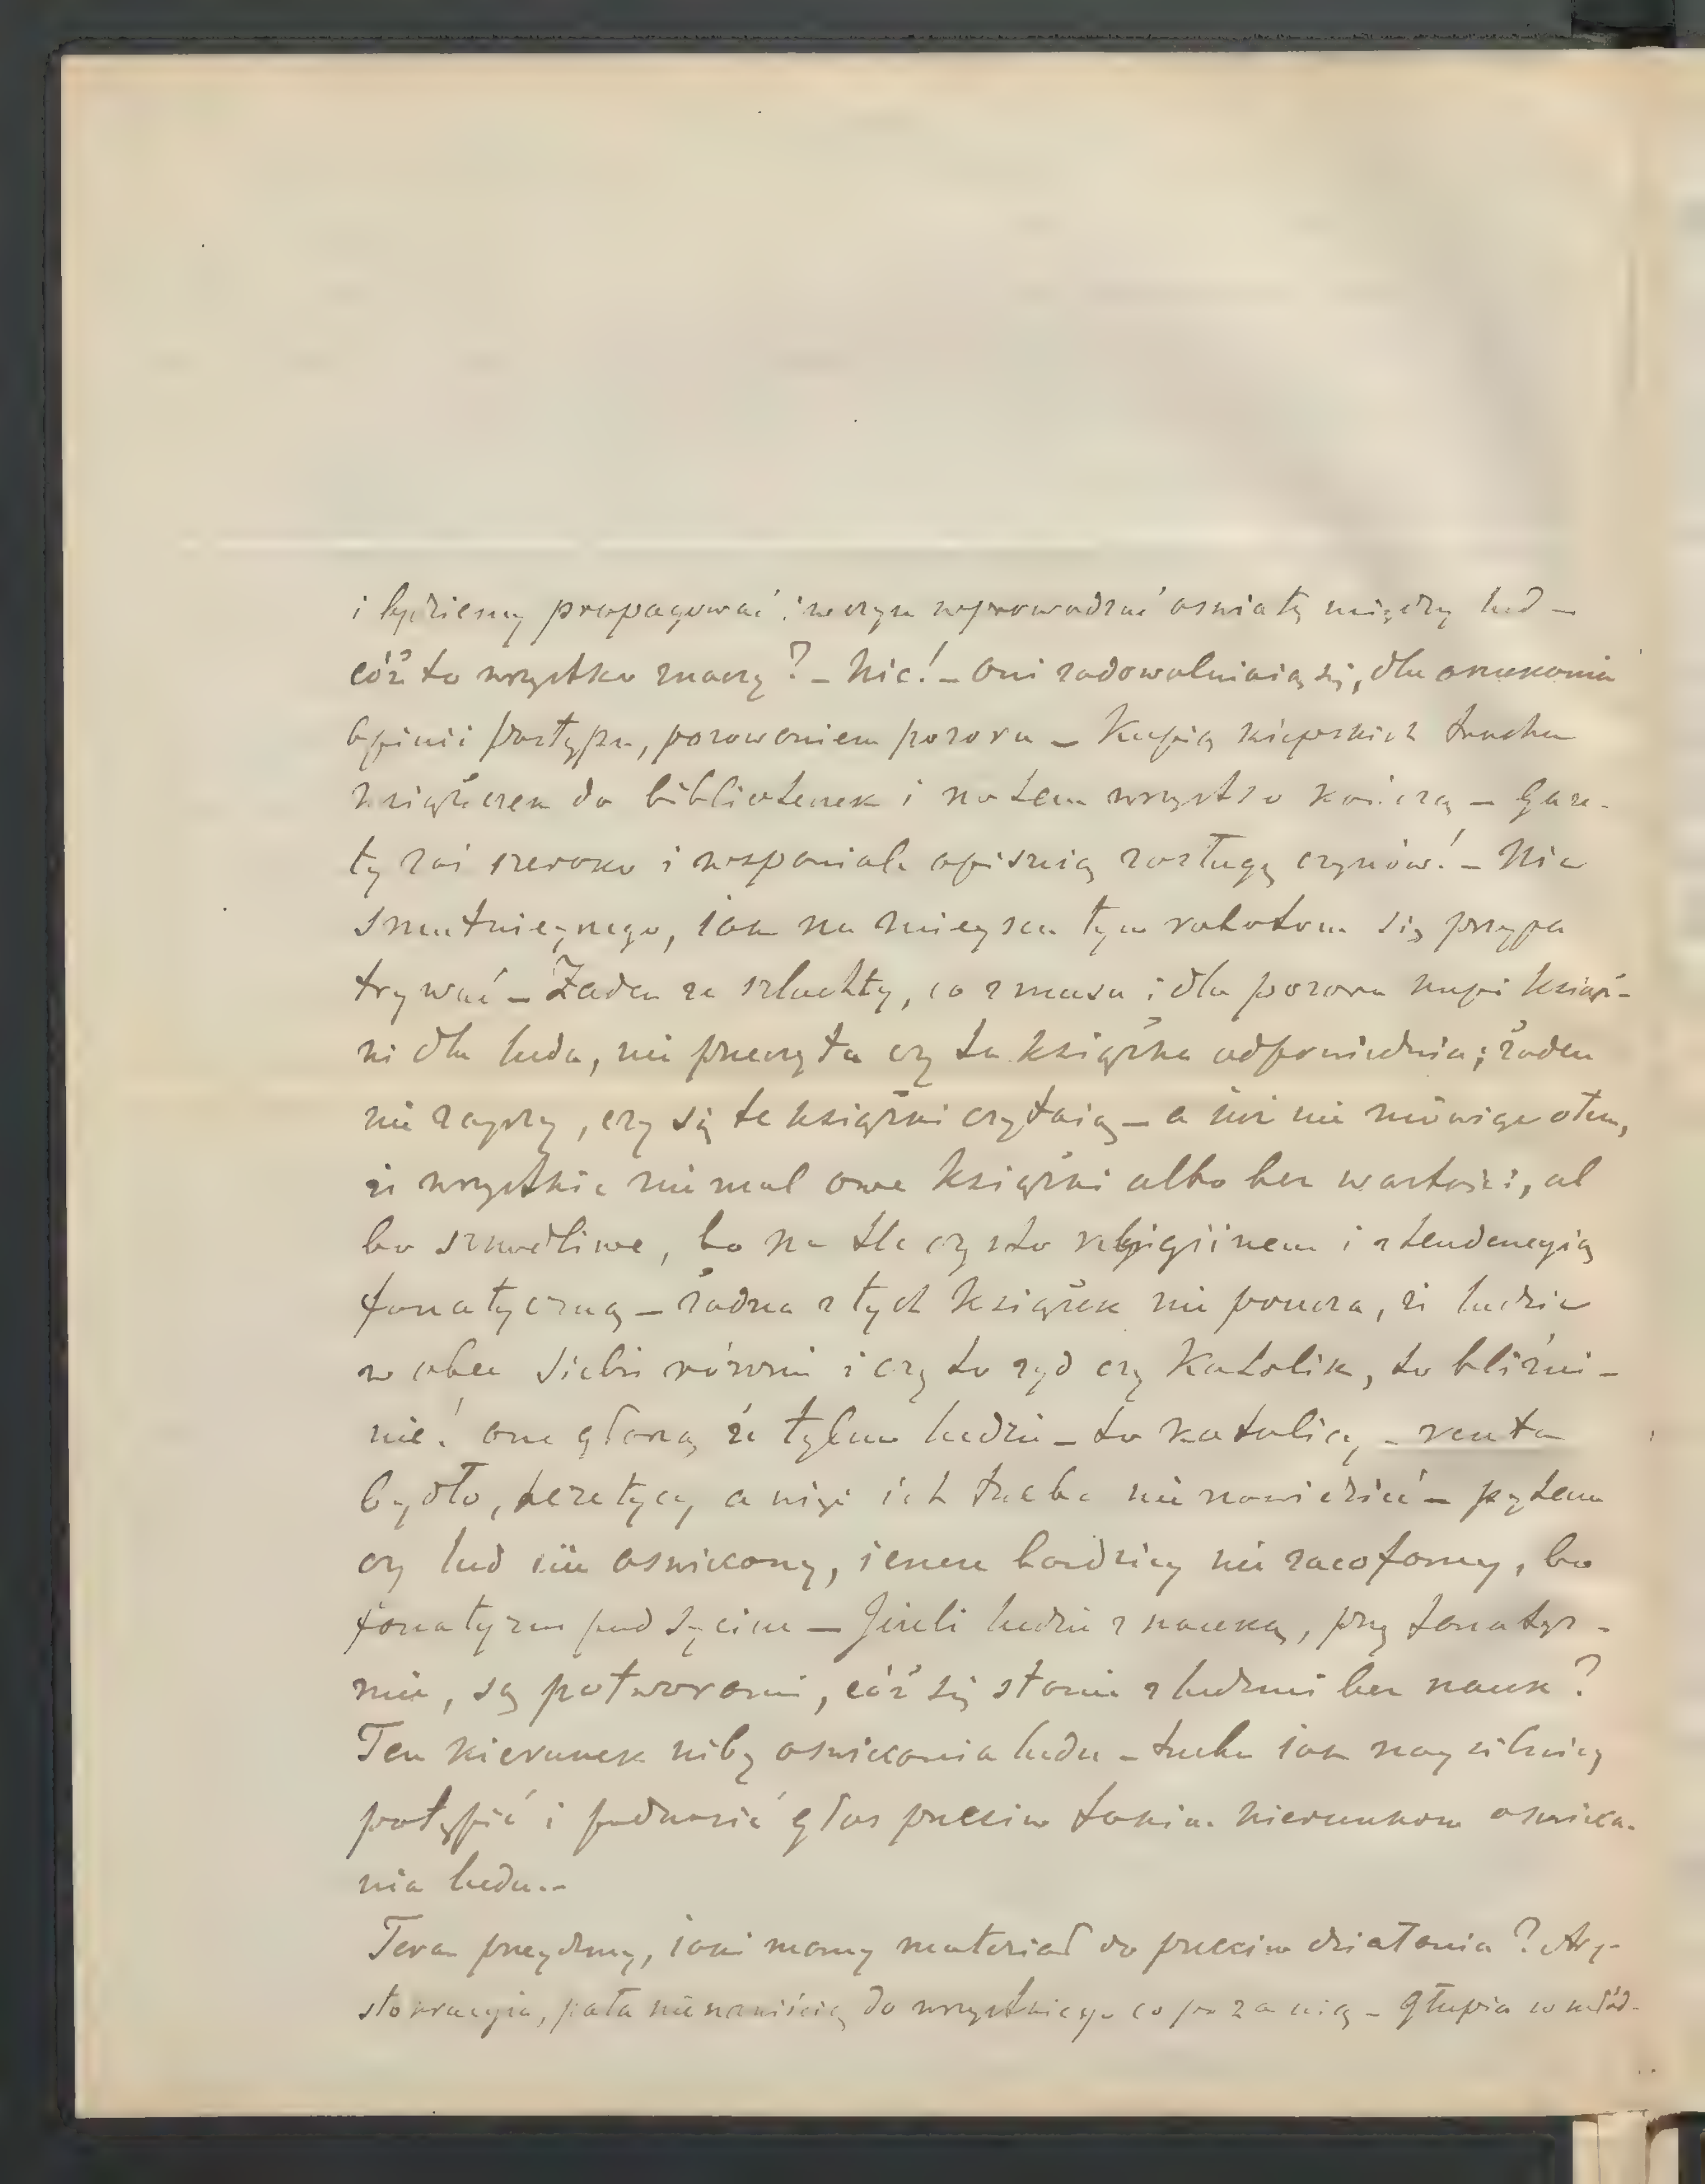 i będziemy propagować i w czyn wprowadzać oswiatę między lud –
cóż to wszystko znaczy? – Nic! – Oni zadowalniaią się, dla oszukania
opinii postępu, pozowaniem pozoru – Kupią kiepskich trochu
książeczek do bibliotenek i na tem wszystko kończą – Gaze-
ty zaś szeroko i wspaniale opisuią zasługę czynów! – Nic
smutnieynego, iak na mieyscu tym robotom się przypa
trywać – Żaden ze szlachty, co z musu i dla pozoru kupi książ-
ki dla ludu, nie przeczyta czy ta książka odpowiednia; żaden
nie zayrzy, czy się te książki czytaią – a iuż nie mówiąc o tem,
że wszystkie niemal owe książki albo bez wartości, al
bo szkodliwe, bo na tle czysto religiinem i z tendencyią
fanatyczną – żadna z tych książek nie poucza, że ludzie
w obec siebie równi i czy to żyd czy Katolik, to bliźni –
nie! one głoszą że tylko ludzie – to katolicy – reszta
bydło, heretycy, a więc ich trzeba nienawidzieć – pytam
czy lud nie oswiecony, ieszcze bardziey nie zacofany, bo
fanatyzm podsycim – Jeżeli ludzie z nauką, przy fanatyz-
mie, są potworami, cóż się stanie z ludźmi bez nauk?
Ten kierunek niby oswiecania ludu – trzeba iak naysilniey
potępić i podnosić głos przeciw takim kierunkom oswieca-
nia ludu. –
Teraz przeydźmy, iaki mamy materiał do przeciw działania? Ary-
stokracyia, pała nienawiścią do wszystkiego co po za nią – Głupia w